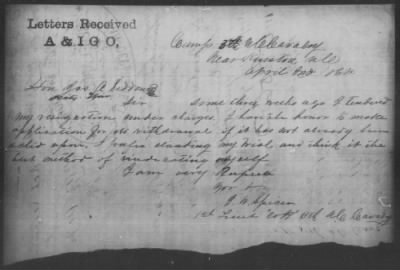 Letters Received
A & I G O,
Camp 5th N C Cavalry
Near Kinston N C
April 2nd 1864
Hon Jas A Seddon
Secty War
Sir some three weeks ago I tendered
my resignation under charges. I have the honor to make
application for its withdrawal if it has not already been
acted upon. I prefer standing my trial, and think it the
best method of vindicating myself
I am very Respect
1st Lieut N C Cavalry